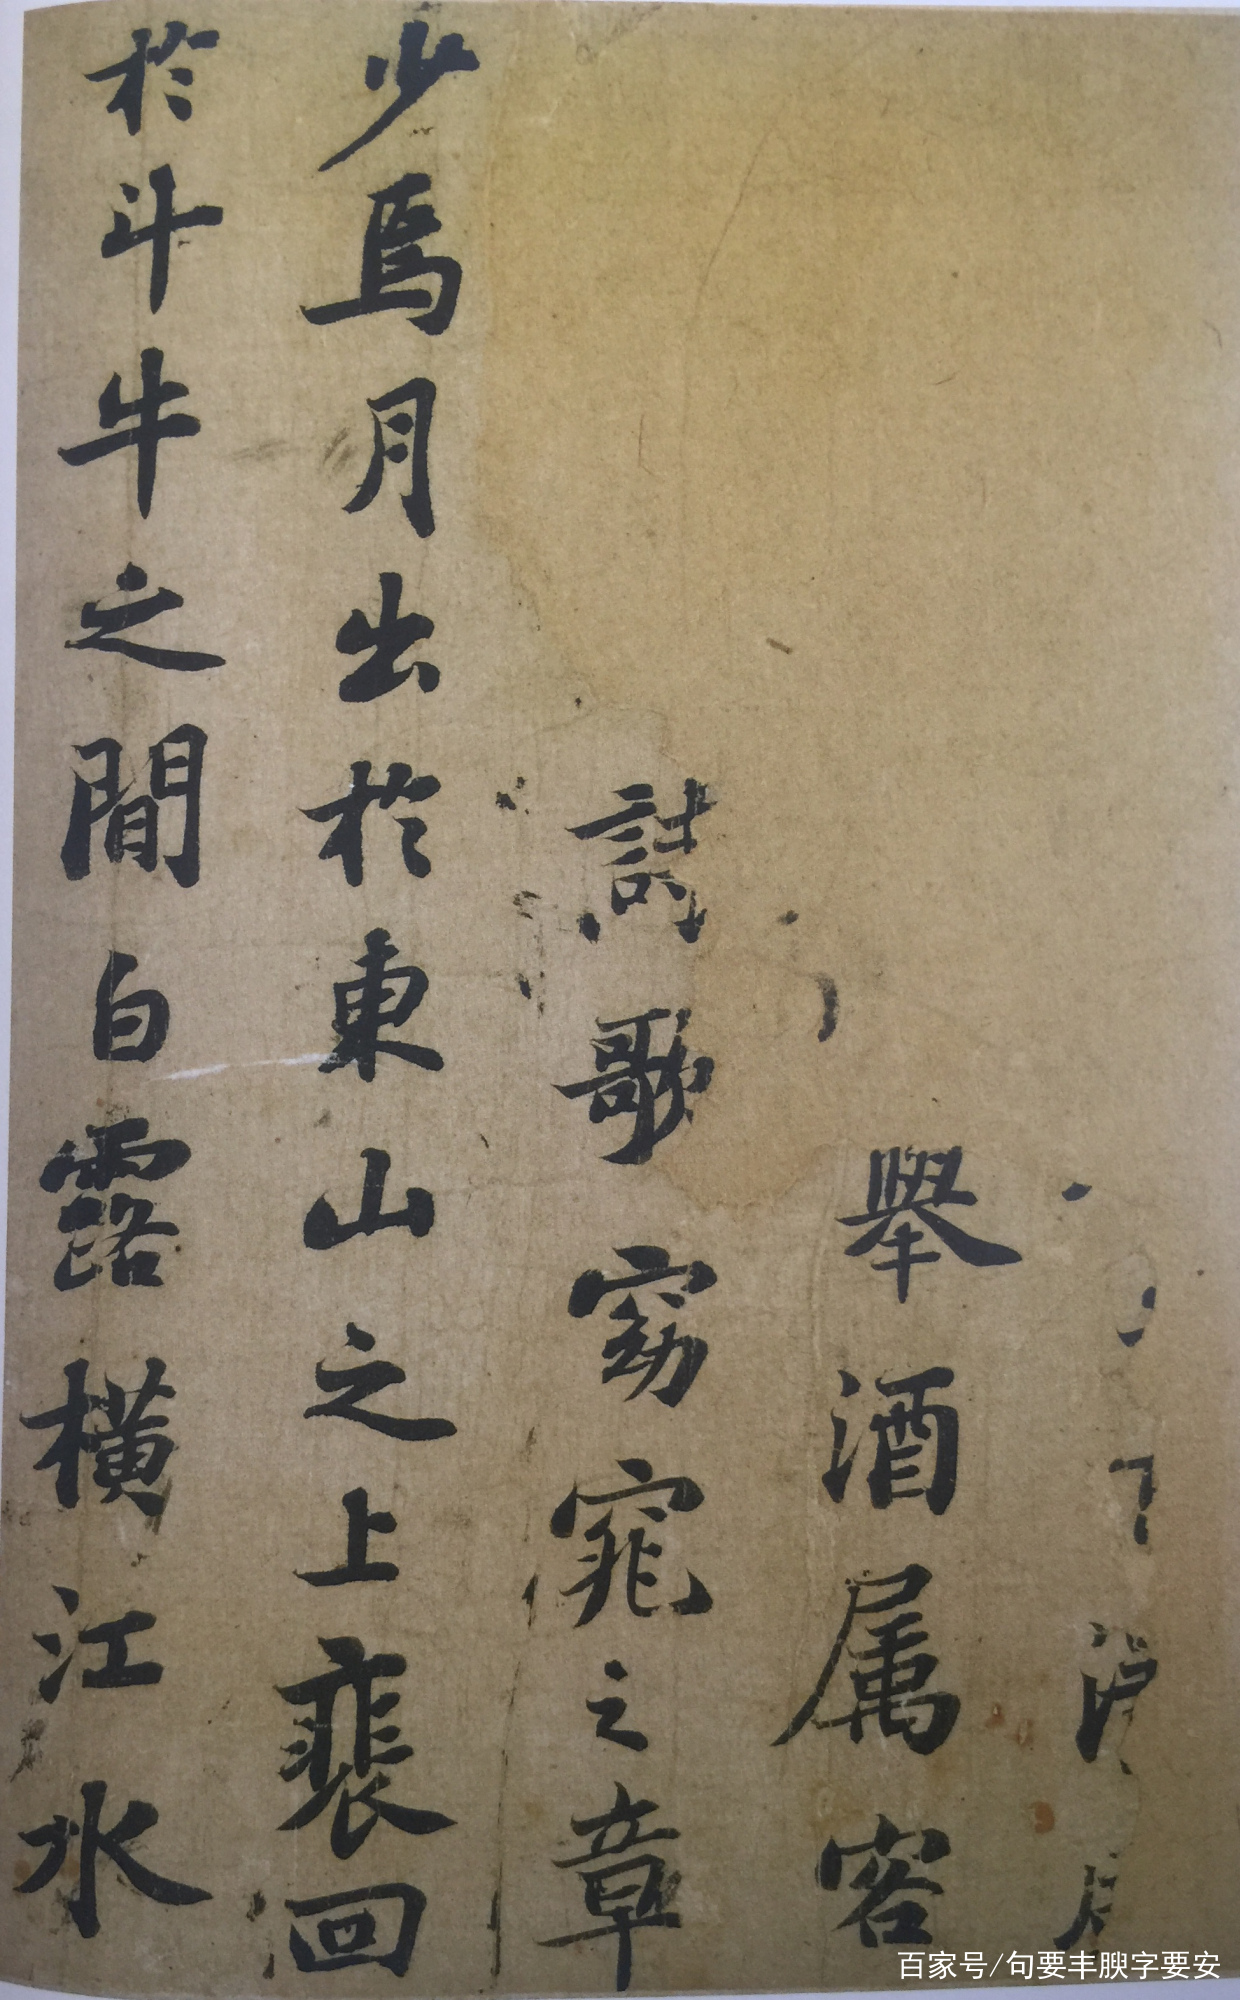 舉酒属客
詩歌窈窕之章
少焉月出於東山之上裵回
於斗牛之間白露橫江水
百家号/句要丰腴字要安